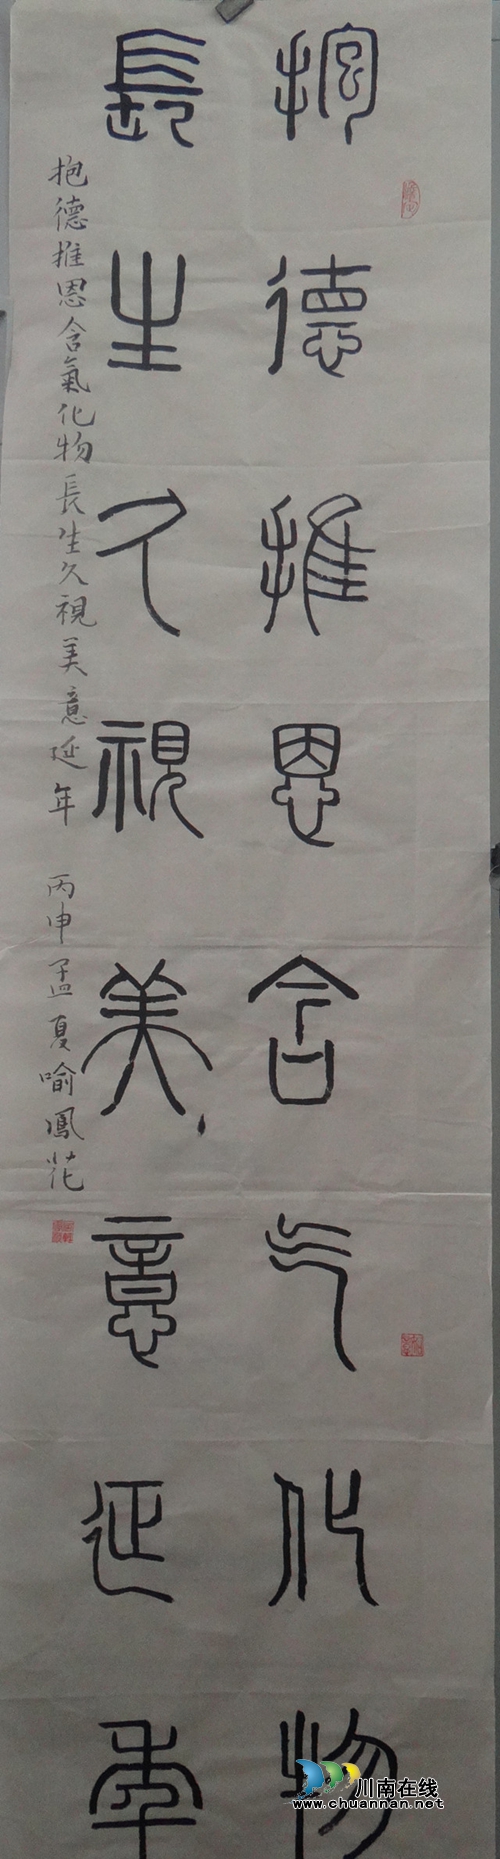 抱德推恩含气化物
長生久視美意延年
抱德推恩含氣化物長生久視美意延年 丙申孟夏喻鳳花
川南在线
www.chuannan.net